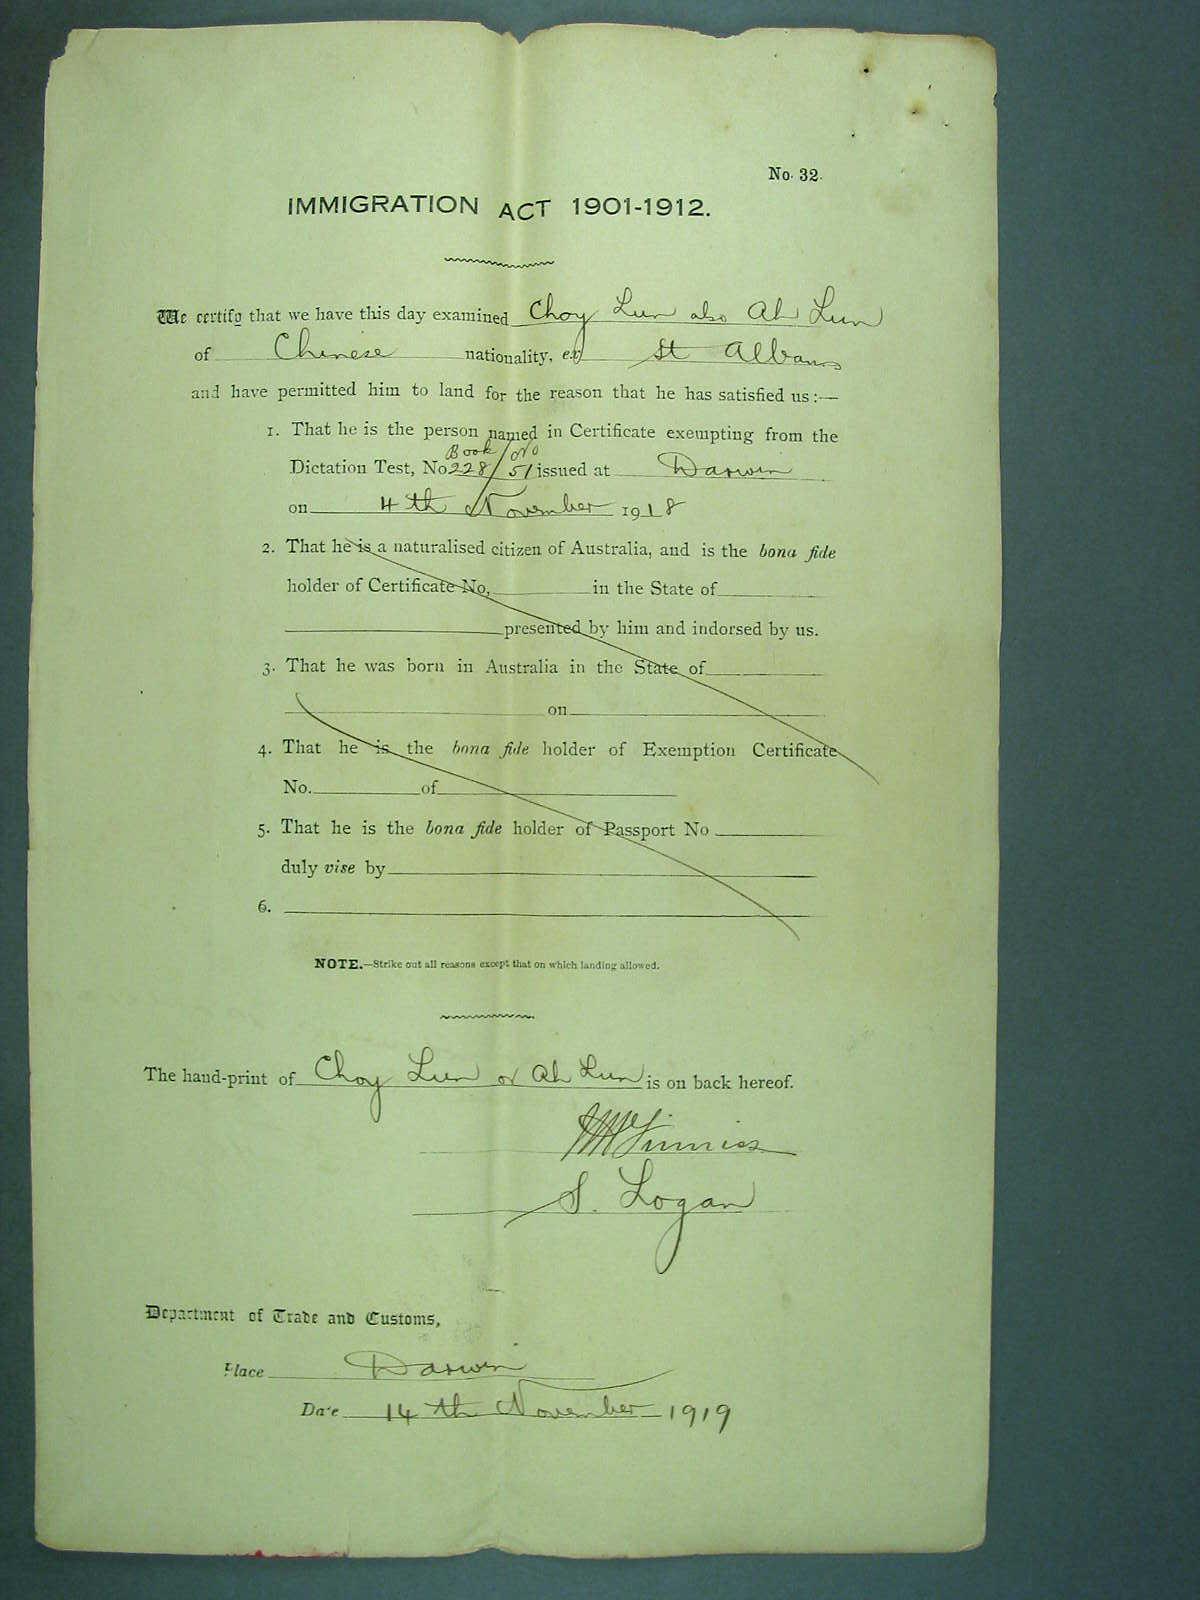 No. 32.
IMMIGRATION ACT 1901-1912.
We certify that we have this day examined Choy Lun also Ah Lun
of Chinese nationality, ex St Albans
and have permitted him to land for the reason that he has satisfied us:—
1. That he is the person named in Certificate exempting from the
Book No
Dictation Test, No 228/51 issued at Darwin
on 4th November 1918
2. That he is a naturalised citizen of Australia, and is the bona fide
holder of Certificate No, in the State of
presented by him and indorsed by us.
3. That he was born in Australia in the State of
on
4. That he is the bona fide holder of Exemption Certificate
No. of
5. That he is the bona fide holder of Passport No
duly vise by
6.
NOTE.—Strike out all reasons except that on which landing allowed.
The hand-print of Choy Lun or Ah Lun is on back hereof.
S. Logan
Department of Trade and Customs,
Place Darwin
Date 14th November 1919